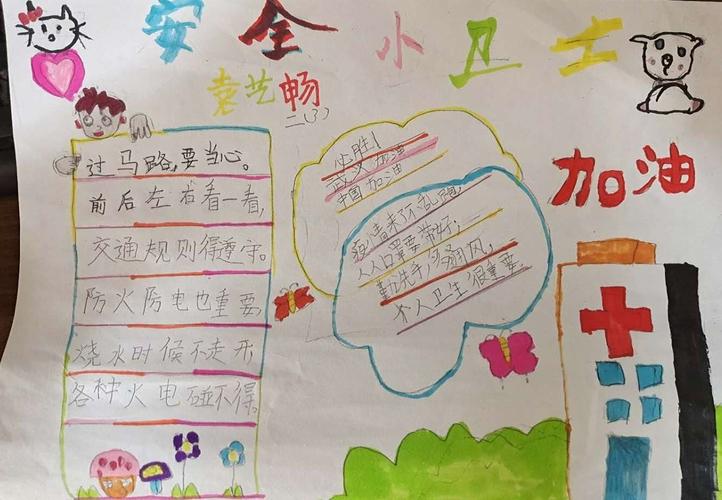 安全小卫士
袁艺畅
二(3)
过马路,要当心。
前后左右看一看,
交通规则得遵守。
防火防电也重要,
烧水时候不走开,
各种火电碰不得。
必胜!
武汉加油
中国加油
疫情来了不乱跑,
人人口罩要带好;
勤洗手,多通风,
个人卫生很重要。
加油